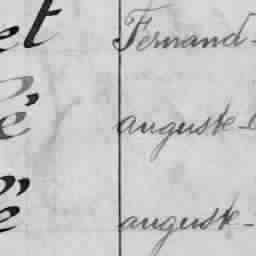 et Fernand-
é auguste-
é auguste-